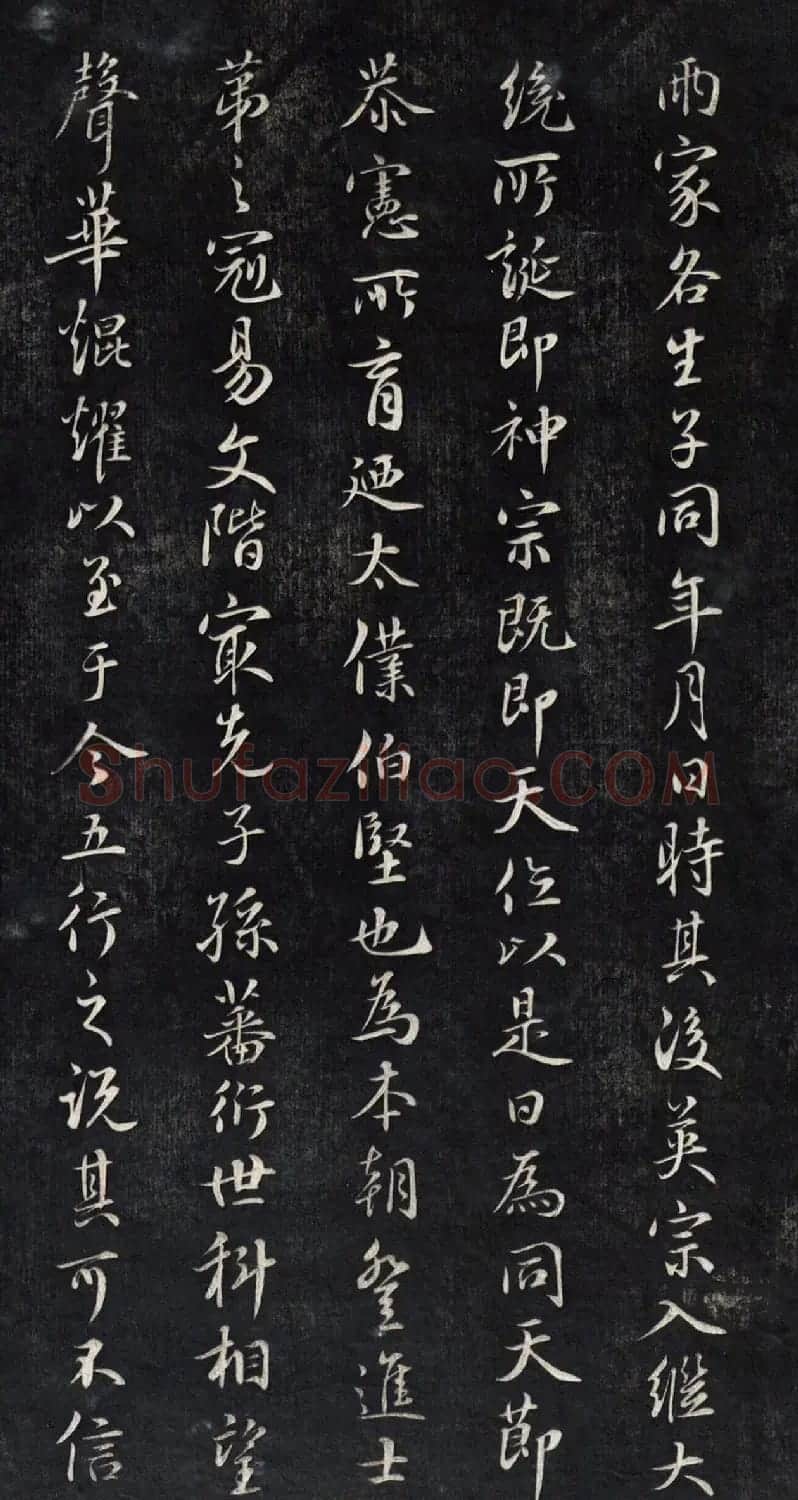 兩家各生子同年月日時其後英宗入繼大
統所誕即神宗既即天位以是日為同天節
恭憲所育廼太僕伯堅也為本朝登進士
第之冠易文階冣先子孫蕃衍世科相望
聲華焜耀以至于今五行之說其可不信
Shufaziliao.COM